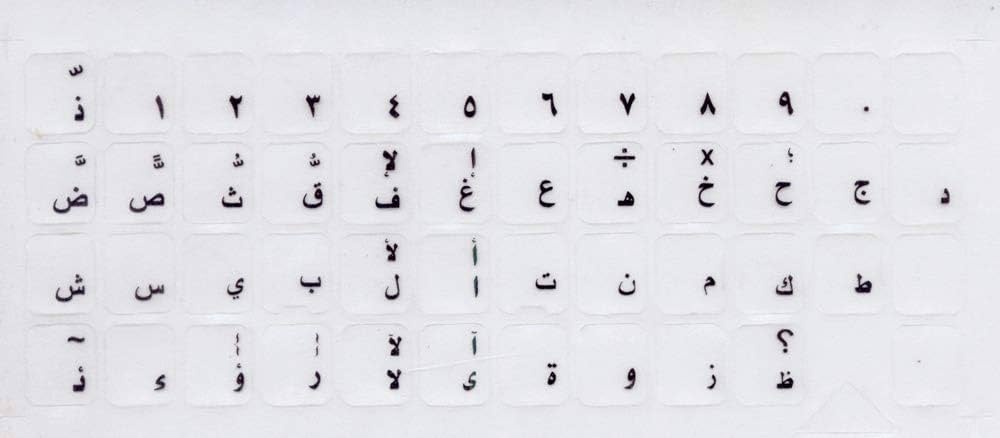 ّ
ذ ١ ٢ ٣ ٤ ٥ ٦ ٧ ٨ ٩ ٠
َ ً ُ ٌ لإ إ ÷ x ؛
ض ص ث ق ف غ ع ه خ ح ج د
لأ أ
ش س ي ب ل ا ت ن م ك ط
~ لآ آ ؟
ئ ء ؤ ر لا ى ة و ز ظ